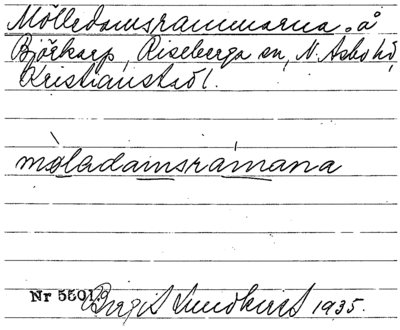 Mölledamsrammarna, å
Björkarp, Riseberga sn, N. Åsbo hd,
Kristianstad l.
möladamsramana
Nr 5501. Birgit Lundkvist 1935.